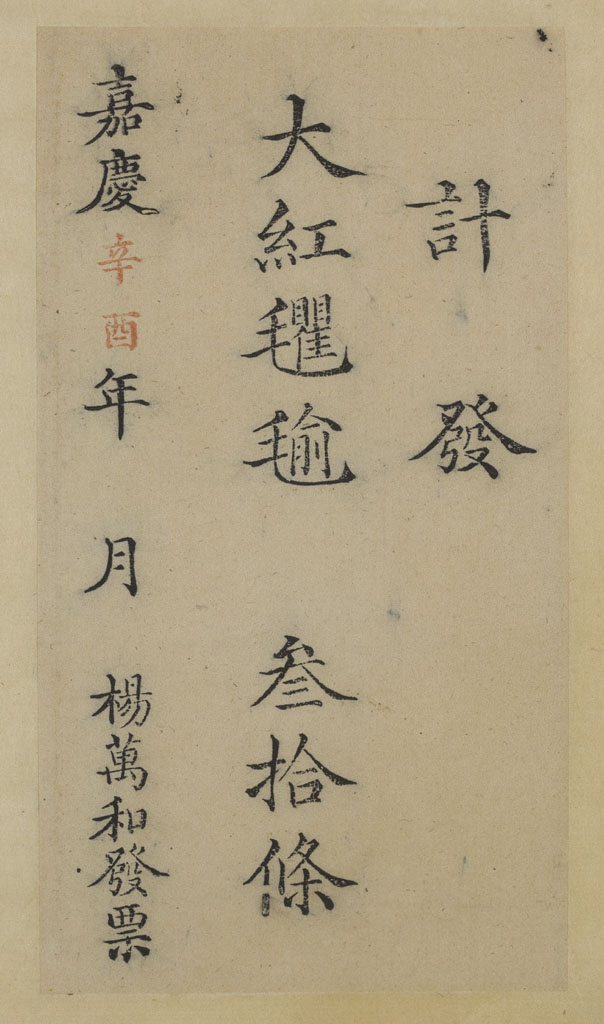 計發
大紅氍毹 叁拾條
嘉慶辛酉年 月 楊萬和發票